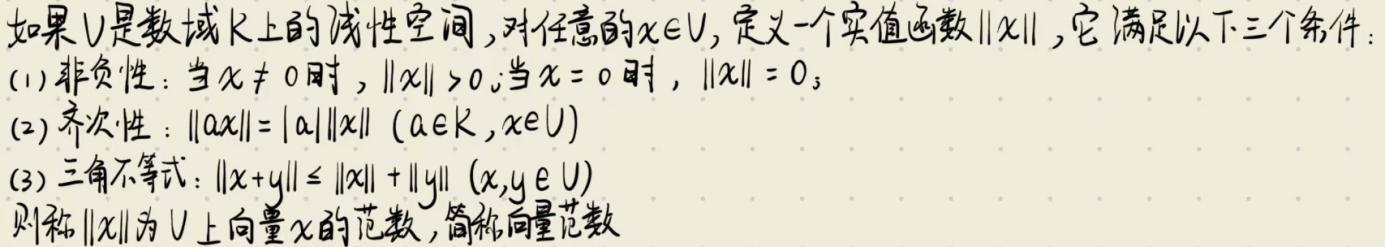 如果U是数域K上的线性空间,对任意的x∈U,定义一个实值函数||x||,它满足以下三个条件:
(1)非负性:当x≠0时,||x||>0;当x=0时,||x||=0;
(2)齐次性:||ax||=|a|||x|| (a∈K,x∈U)
(3)三角不等式:||x+y||≤||x||+||y|| (x,y∈U)
则称||x||为U上向量x的范数,简称向量范数